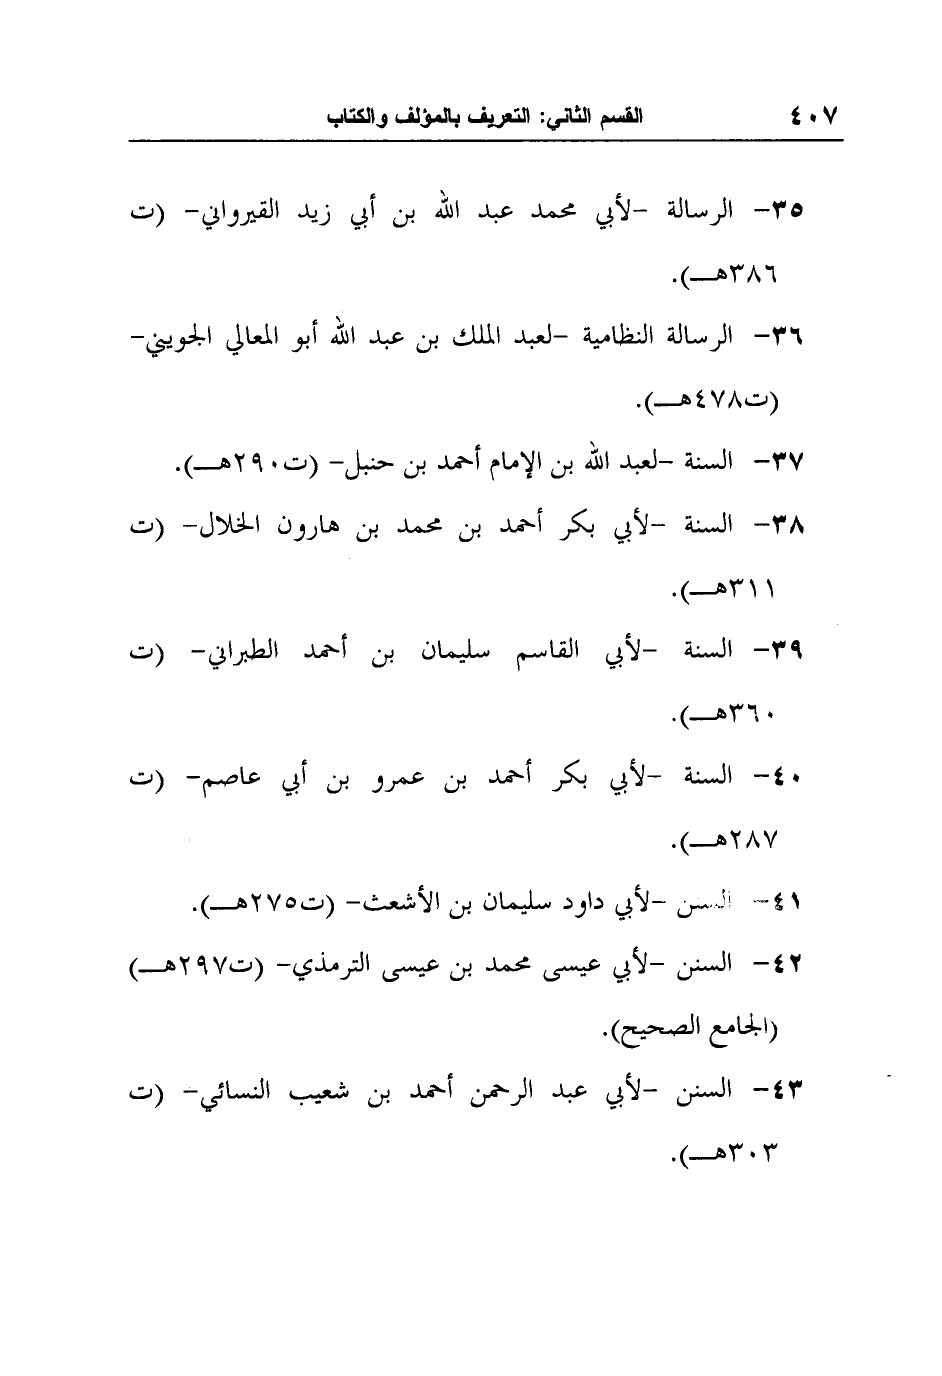 ٤٠٧ القسم الثاني: التعريف بالمؤلف والكتاب
٣٥- الرسالة -لأبي محمد عبد الله بن أبي زيد القيرواني- (ت
٣٨٦هـ).
٣٦- الرسالة النظامية -لعبد الملك بن عبد الله أبو المعالي الجويني-
(ت٤٧٨هـ).
٣٧- السنة -لعبد الله بن الإمام أحمد بن حنبل- (ت٢٩٠هـ).
٣٨- السنة -لأبي بكر أحمد بن محمد بن هارون الخلال- (ت
٣١١هـ).
٣٩- السنة -لأبي القاسم سليمان بن أحمد الطبراني- (ت
٣٦٠هـ).
٤٠- السنة -لأبي بكر أحمد بن عمرو بن أبي عاصم- (ت
٢٨٧هـ).
٤١- السنن -لأبي داود سليمان بن الأشعث- (ت٢٧٥هـ).
٤٢- السنن -لأبي عيسى محمد بن عيسى الترمذي- (ت٢٩٧هـ)
(الجامع الصحيح).
٤٣- السنن -لأبي عبد الرحمن أحمد بن شعيب النسائي- (ت
٣٠٣هـ).